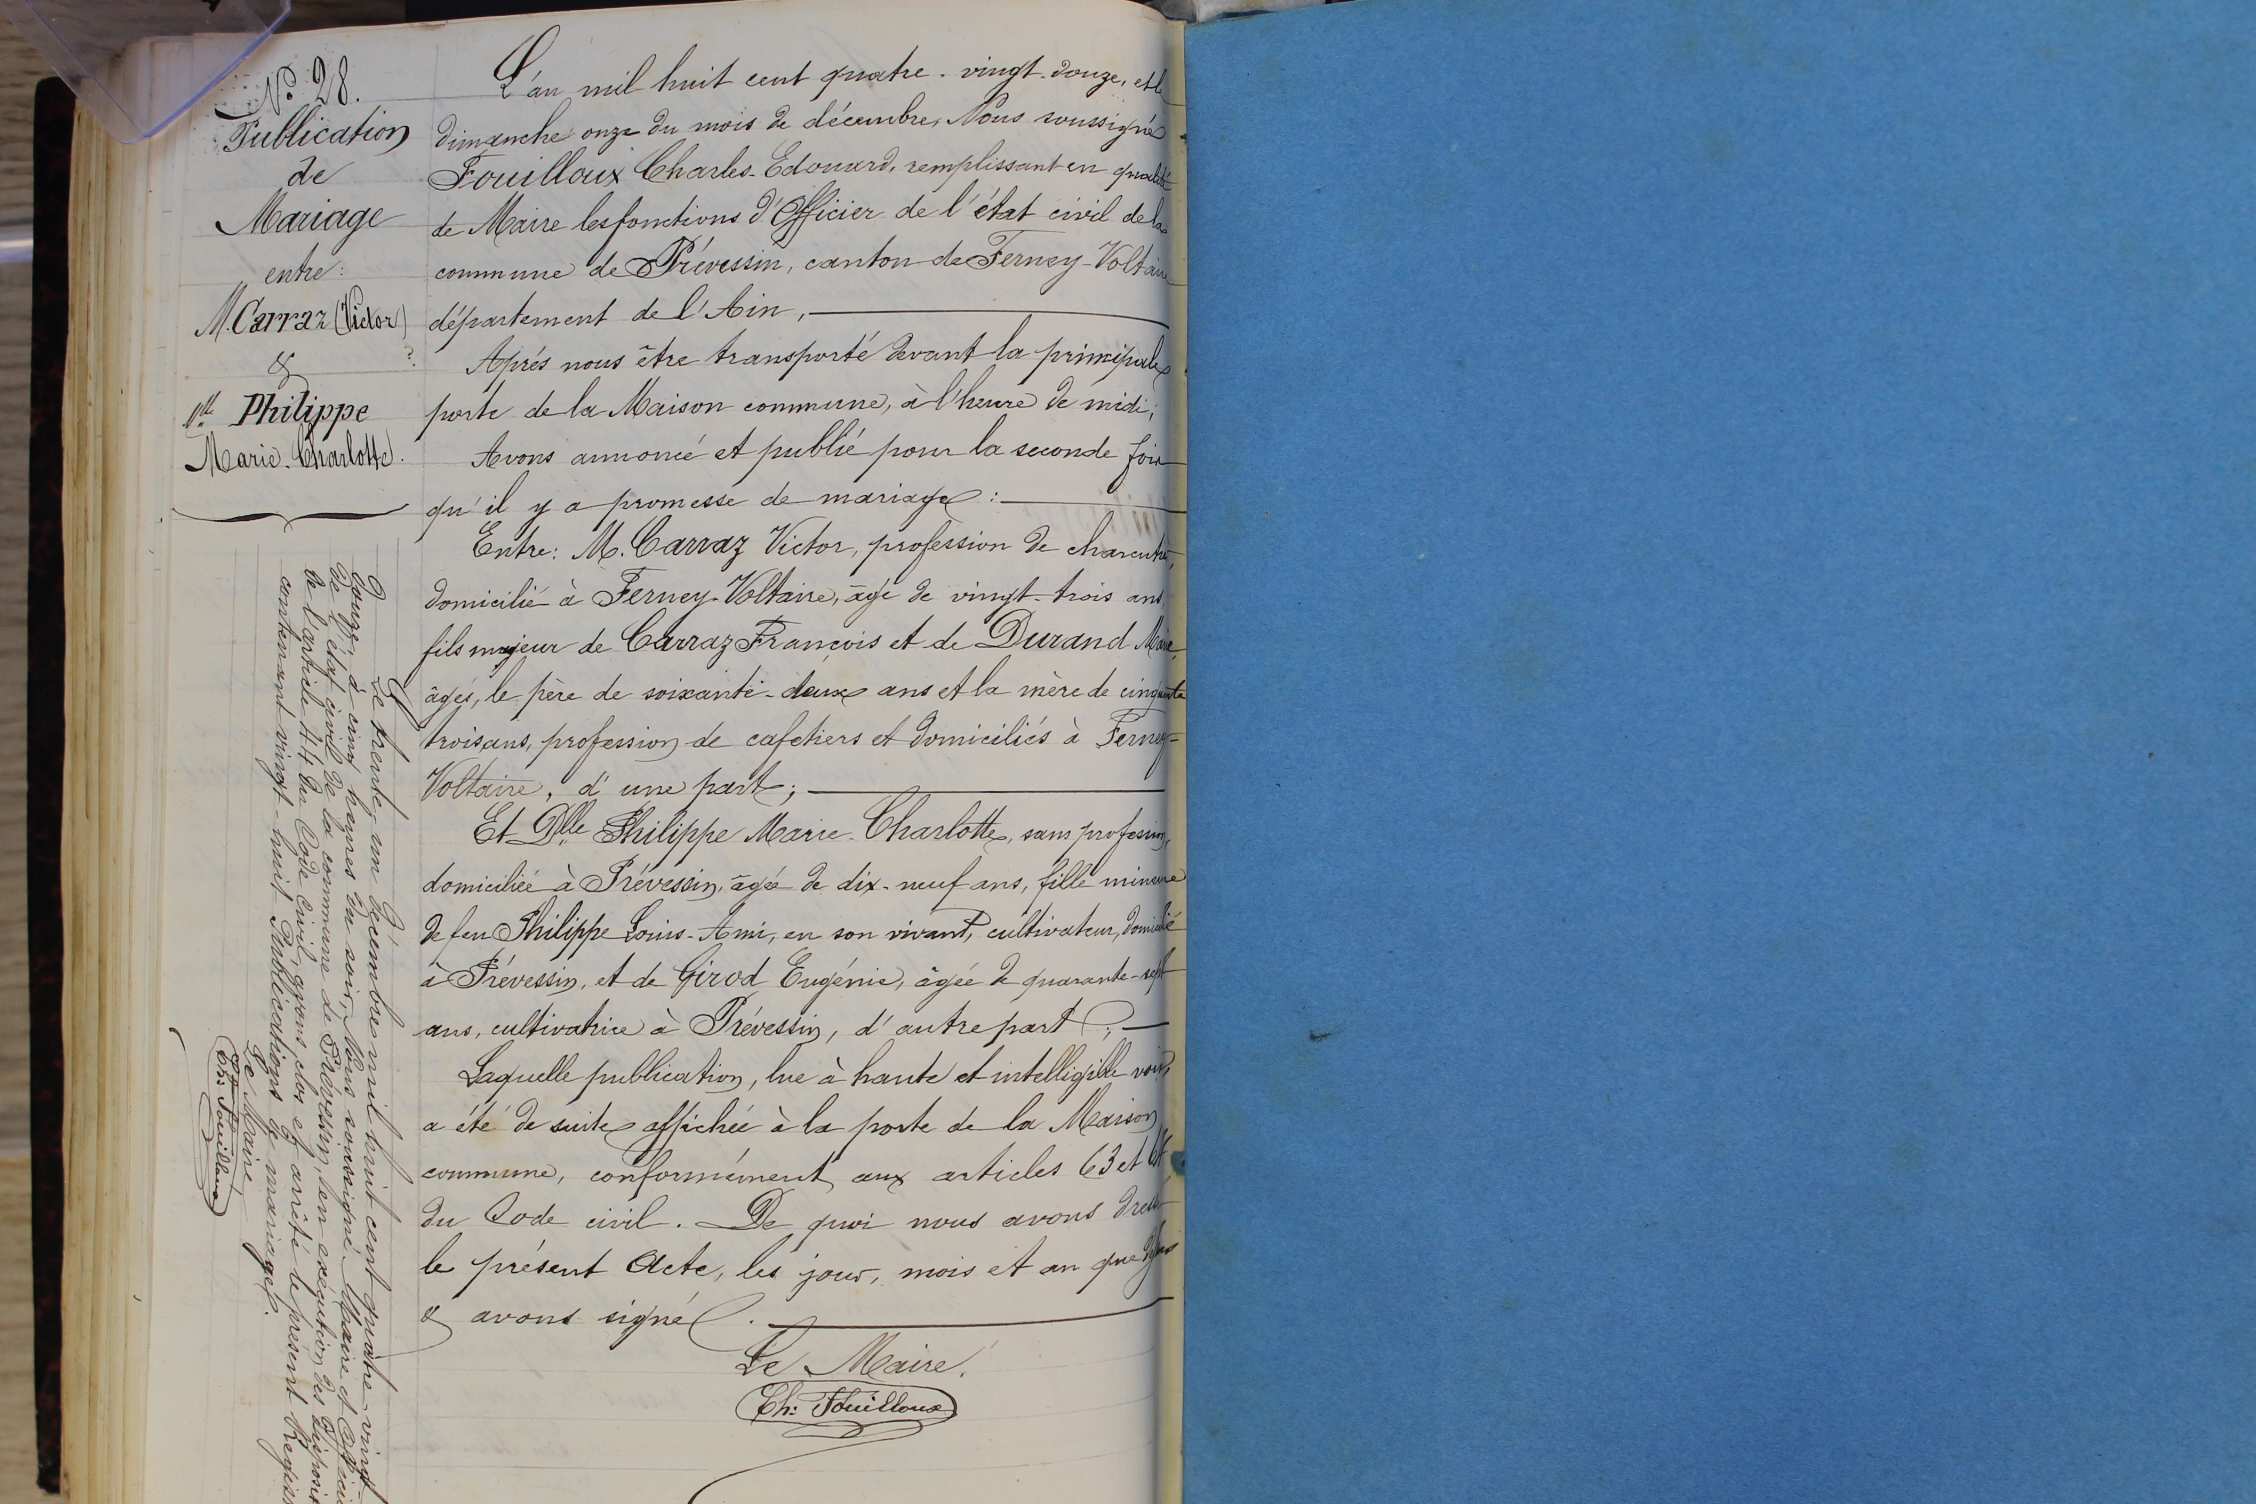 N° 28.
Publication
de
Mariage
entre :
M. Carraz (Victor)
&
Dlle Philippe
Marie-Charlotte.
L'an mil huit cent quatre-vingt-douze, et le
dimanche onze du mois de décembre, Nous soussigné
Fouilloux Charles-Edouard, remplissant en qualité
de Maire les fonctions d'Officier de l'état civil de la
commune de Prévessin, canton de Ferney-Voltaire
département de l'Ain,
Après nous être transporté devant la principale
porte de la Maison commune, à l'heure de midi;
Avons annoncé et publié pour la seconde fois
qu'il y a promesse de mariage :
Entre : M. Carraz Victor, profession de charcutier,
domicilié à Ferney-Voltaire, âgé de vingt-trois ans,
fils majeur de Carraz François et de Durand Marie,
âgés, le père de soixante-deux ans et la mère de cinquante
trois ans, profession de cafetiers et domiciliés à Ferney-
Voltaire, d'une part;
Et Dlle Philippe Marie-Charlotte, sans profession,
domiciliée à Prévessin, âgée de dix-neuf ans, fille mineure
de feu Philippe Louis-Ami, en son vivant, cultivateur, domicilié
à Prévessin, et de Girod Eugénie, âgée de quarante-sept
ans, cultivatrice à Prévessin, d'autre part;
Laquelle publication, lue à haute et intelligible voix,
a été de suite affichée à la porte de la Maison
commune, conformément aux articles 63 et 64
du Code civil. De quoi nous avons dressé
le présent Acte, les jour, mois et an que dessus
& avons signé.
Le Maire,
Ch: Fouilloux
Le trente-un Décembre mil huit cent quatre-vingt-
douze, à cinq heures du soir, Nous soussigné, Maire et Officier
de l'état civil de la commune de Prévessin, en exécution des disposit
de l'article 44 du Code Civil, avons clos et arrêté le présent Registre
contenant vingt-huit Publications de mariages.
Le Maire,
Ch: Fouilloux